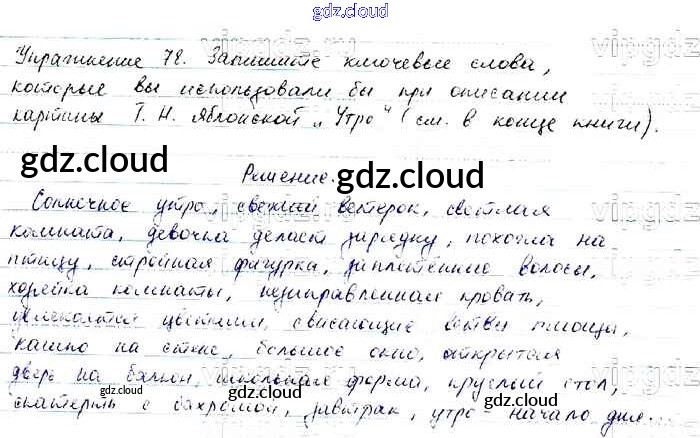 gdz.cloud
Упражнение 78. Запишите ключевые слова,
которые вы использовали бы при описании
картины Т. Н. Яблонской „Утро" (см. в конце книги).
gdz.cloud
Решение.
gdz.cloud
Солнечное утро, свежий ветерок, светлая
комната, девочка делает зарядку, похожа на
птицу, стройная фигурка, заплетённые волосы,
хозяйка комнаты, незаправленная кровать,
цветами, свисающие ветви
кашпо на стене, большое окно, открытая
дверь на балкон, школьная форма, круглый стол,
gdz.cloud
скатерть с бахромой, завтрак, утро - начало дня...
gdz.cloud
vipgdz